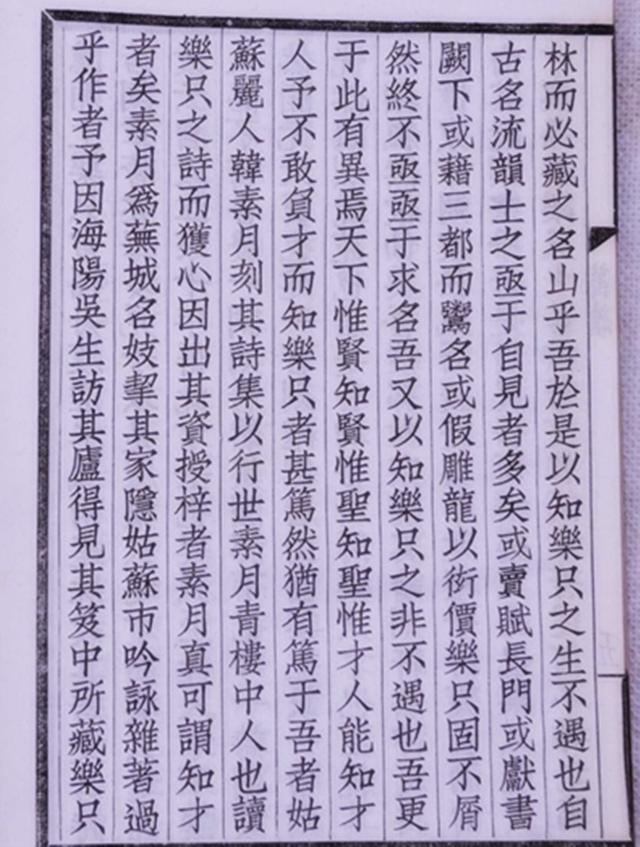 林而必藏之名山乎吾於是以知樂只之生不遇也自
古名流韻士之亟于自見者多矣或賣賦長門或獻書
闕下或藉三都而鸞名或假雕龍以衒價樂只固不屑
然終不亟亟于求名吾又以知樂只之非不遇也吾更
于此有異焉天下惟賢知賢惟聖知聖惟才人能知才
人予不敢負才而知樂只者甚篤然猶有篤于吾者姑
蘇麗人韓素月刻其詩集以行世素月青樓中人也讀
樂只之詩而獲心因出其資授梓者素月真可謂知才
者矣素月爲蕪城名妓挈其家隱姑蘇市吟詠雜著過
乎作者予因海陽吳生訪其廬得見其笈中所藏樂只